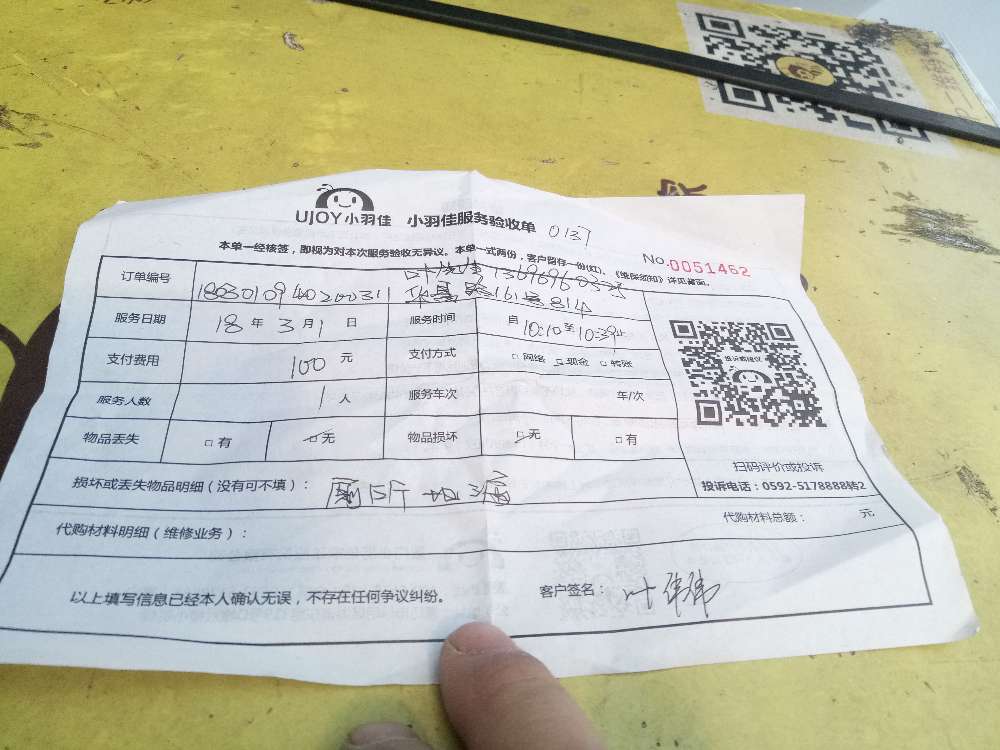 UJOY小羽佳 小羽佳服务验收单 0137
本单一经核签，即视为对本次服务验收无异议。本单一式两份，客户留存一份(红)，《维保须知》详见背面。
No.0051462
订单编号
服务日期 18 年 3 月 1 日 服务时间 自 10:10 至 10:39 止
支付费用 100 元 支付方式 □网络 □现金 □转账
服务人数 1 人 服务车次 年/次
物品丢失 □有 □无 物品损坏 □无 □有
扫码评价或投诉
投诉电话：0592-5178888转2
损坏或丢失物品明细（没有可不填）：
代购材料明细（维修业务）： 代购材料总额： 元
以上填写信息已经本人确认无误，不存在任何争议纠纷。 客户签名：